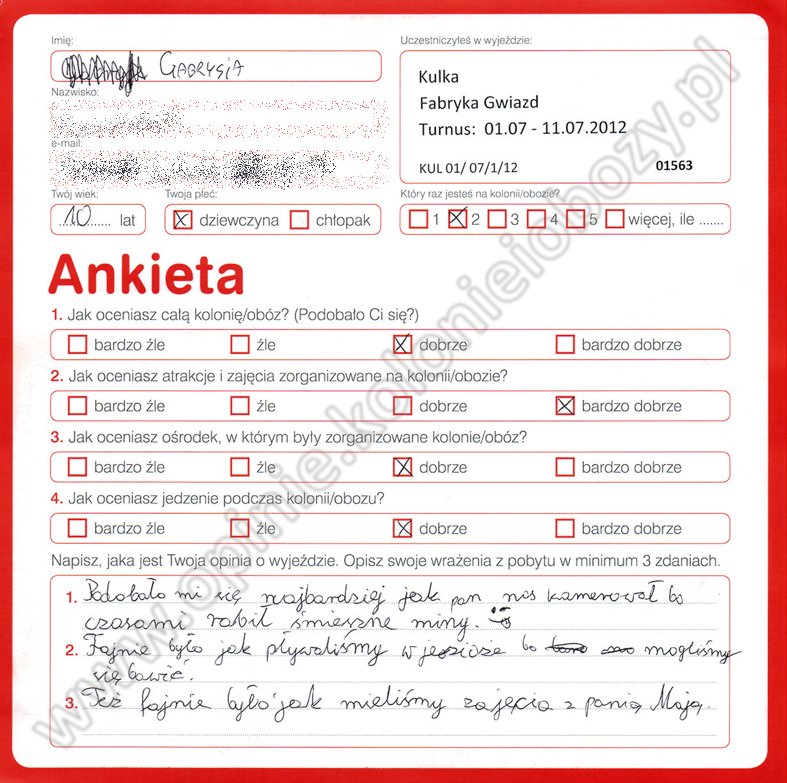 Imię:
GABRYSIA
Nazwisko:
e-mail:
Twój wiek:
10 lat
Twoja płeć:
dziewczyna chłopak
Uczestniczyłeś w wyjeździe:
Kulka
Fabryka Gwiazd
Turnus: 01.07 - 11.07.2012
KUL 01/ 07/1/12 01563
Który raz jesteś na kolonii/obozie?
1 2 3 4 5 więcej, ile .......
Ankieta
1. Jak oceniasz całą kolonię/obóz? (Podobało Ci się?)
bardzo źle źle dobrze bardzo dobrze
2. Jak oceniasz atrakcje i zajęcia zorganizowane na kolonii/obozie?
bardzo źle źle dobrze bardzo dobrze
3. Jak oceniasz ośrodek, w którym były zorganizowane kolonie/obóz?
bardzo źle źle dobrze bardzo dobrze
4. Jak oceniasz jedzenie podczas kolonii/obozu?
bardzo źle źle dobrze bardzo dobrze
Napisz, jaka jest Twoja opinia o wyjeździe. Opisz swoje wrażenia z pobytu w minimum 3 zdaniach.
1. Podobało mi się najbardziej jak pan nas kamerował bo
czasami robił śmieszne miny.
2. Fajnie było jak pływaliśmy w jeziorze bo mogliśmy
się bawić.
3. Też fajnie było jak mieliśmy zajęcia z panią Mają.
www.opinie.kolonieiobozy.pl